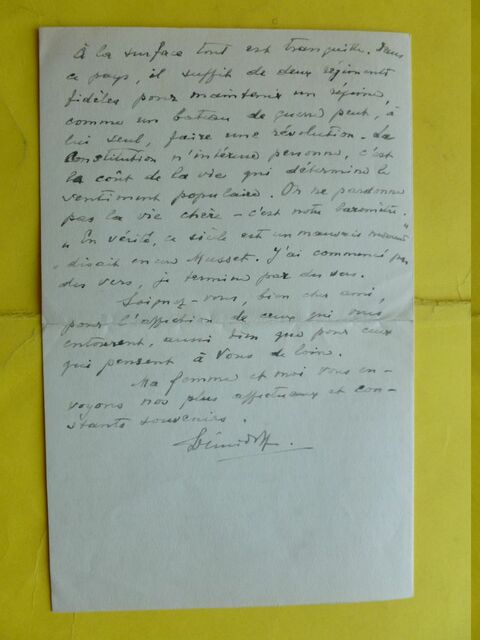 À la surface tout est tranquille. Dans
ce pays, il suffit de deux régiments
fidèles pour maintenir un régime,
comme un bateau de guerre peut, à
lui seul, faire une révolution. La
Constitution n'intéresse personne, c'est
le coût de la vie qui détermine le
sentiment populaire. On ne pardonne
pas la vie chère – c'est notre baromètre.
"En vérité, ce siècle est un mauvais moment"
– disait encore Musset. J'ai commencé par
des vers, je termine par des vers.
Soignez-vous, bien cher ami,
pour l'affection de ceux qui vous
entourent, aussi bien que pour ceux
qui pensent à Vous de loin.
Ma femme et moi vous en-
voyons nos plus affectueux et con-
stants souvenirs.
Demidoff.